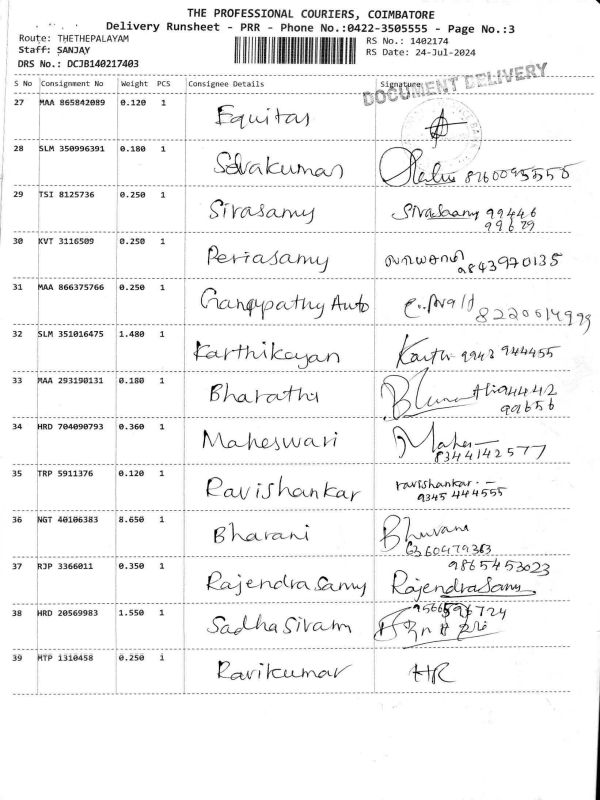 THE PROFESSIONAL COURIERS, COIMBATORE
Delivery Runsheet - PRR - Phone No.:0422-3505555 - Page No.:3
Route: THETHEPALAYAM RS No.: 1402174
Staff: SANJAY RS Date: 24-Jul-2024
DRS No.: DCJB140217403
DOCUMENT DELIVERY
S No Consignment No Weight PCS Consignee Details Signature
27 MAA 865842089 0.120 1 Equitas
28 SLM 350996391 0.180 1 Selvakumar
29 TSI 8125736 0.250 1 Sivasamy Sivasamy 99446
99679
30 KVT 3116509 0.250 1 Periasamy
9843970135
31 MAA 866375766 0.250 1 Ganapathy Auto
8220614999
32 SLM 351016475 1.480 1 Karthikeyan Karthi 9943 944455
33 MAA 293190131 0.180 1 Bharathi 94442
99656
34 HRD 704090793 0.360 1 Maheswari Mahes
8344142577
35 TRP 5911376 0.120 1 Ravishankar ravishankar
9345 444555
36 NGT 40106383 8.650 1 Bharani Bhuvana
6360479363
37 RJP 3366011 0.350 1 Rajendrasamy 9865453023
Rajendrasamy
38 HRD 20569983 1.550 1 Sadhasivam
39 MTP 1310458 0.250 1 Ravikumar HR